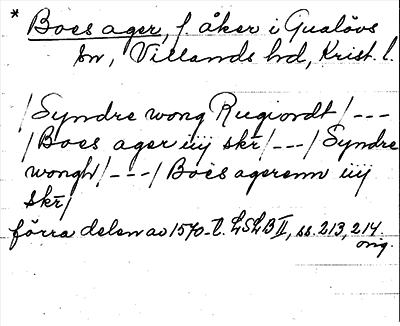 * Boes ager, f. åker i Gualövs
sn, Villands hd, Krist. l.
/Syndre wong Rugiordt/---
/Boes ager iiij skr/---/Syndre
wongh/---/Boes agerenn iiij
skr/
förra delen av 1570-t. LSLB II, ss. 213, 214.
orig.